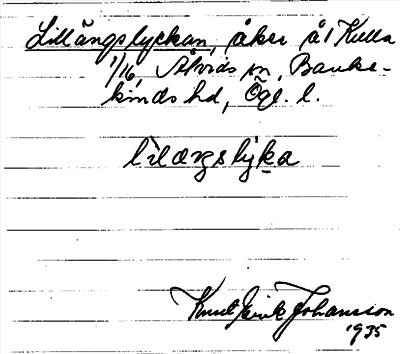 Lillängslyckan, åker å 1 Kulla
1/16, Åtvids sn, Banke-
kinds hd, Ögl. l.
lìlæŋslỳka
Knut Erik Johansson
1935